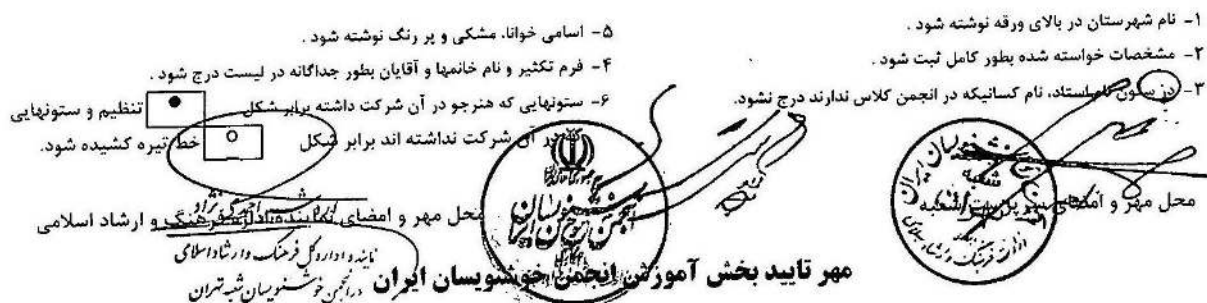 ۱- نام شهرستان در بالای ورقه نوشته شود .
۲- مشخصات خواسته شده بطور کامل ثبت شود .
۳- در ستون نام استاد، نام کسانیکه در انجمن کلاس ندارند درج نشود.
۵- اسامی خوانا، مشکی و پر رنگ نوشته شود .
۴- فرم تکثیر و نام خانمها و آقایان بطور جداگانه در لیست درج شود .
۶- ستونهایی که هنرجو در آن شرکت داشته برابر شکل تنظیم و ستونهایی
که در آن شرکت نداشته اند برابر شکل خط تیره کشیده شود.
محل مهر و امضای سرپرست شعبه
محل مهر و امضای نماینده اداره فرهنگ و ارشاد اسلامی
نماینده اداره کل فرهنگ و ارشاد اسلامی
در انجمن خوشنویسان شعبه تهران
مهر تایید بخش آموزش انجمن خوشنویسان ایران
انجمن خوشنویسان ایران
شعبه